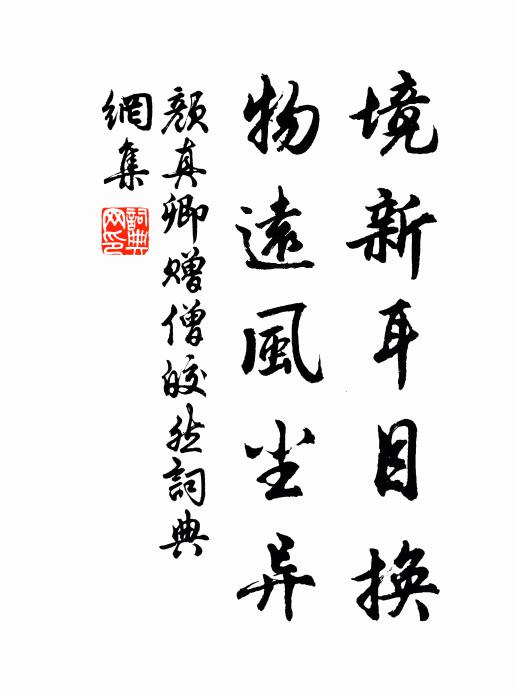 境新耳目換
物遠風尘异
顔真卿赠僧皎然詞典
網集
詞典网印